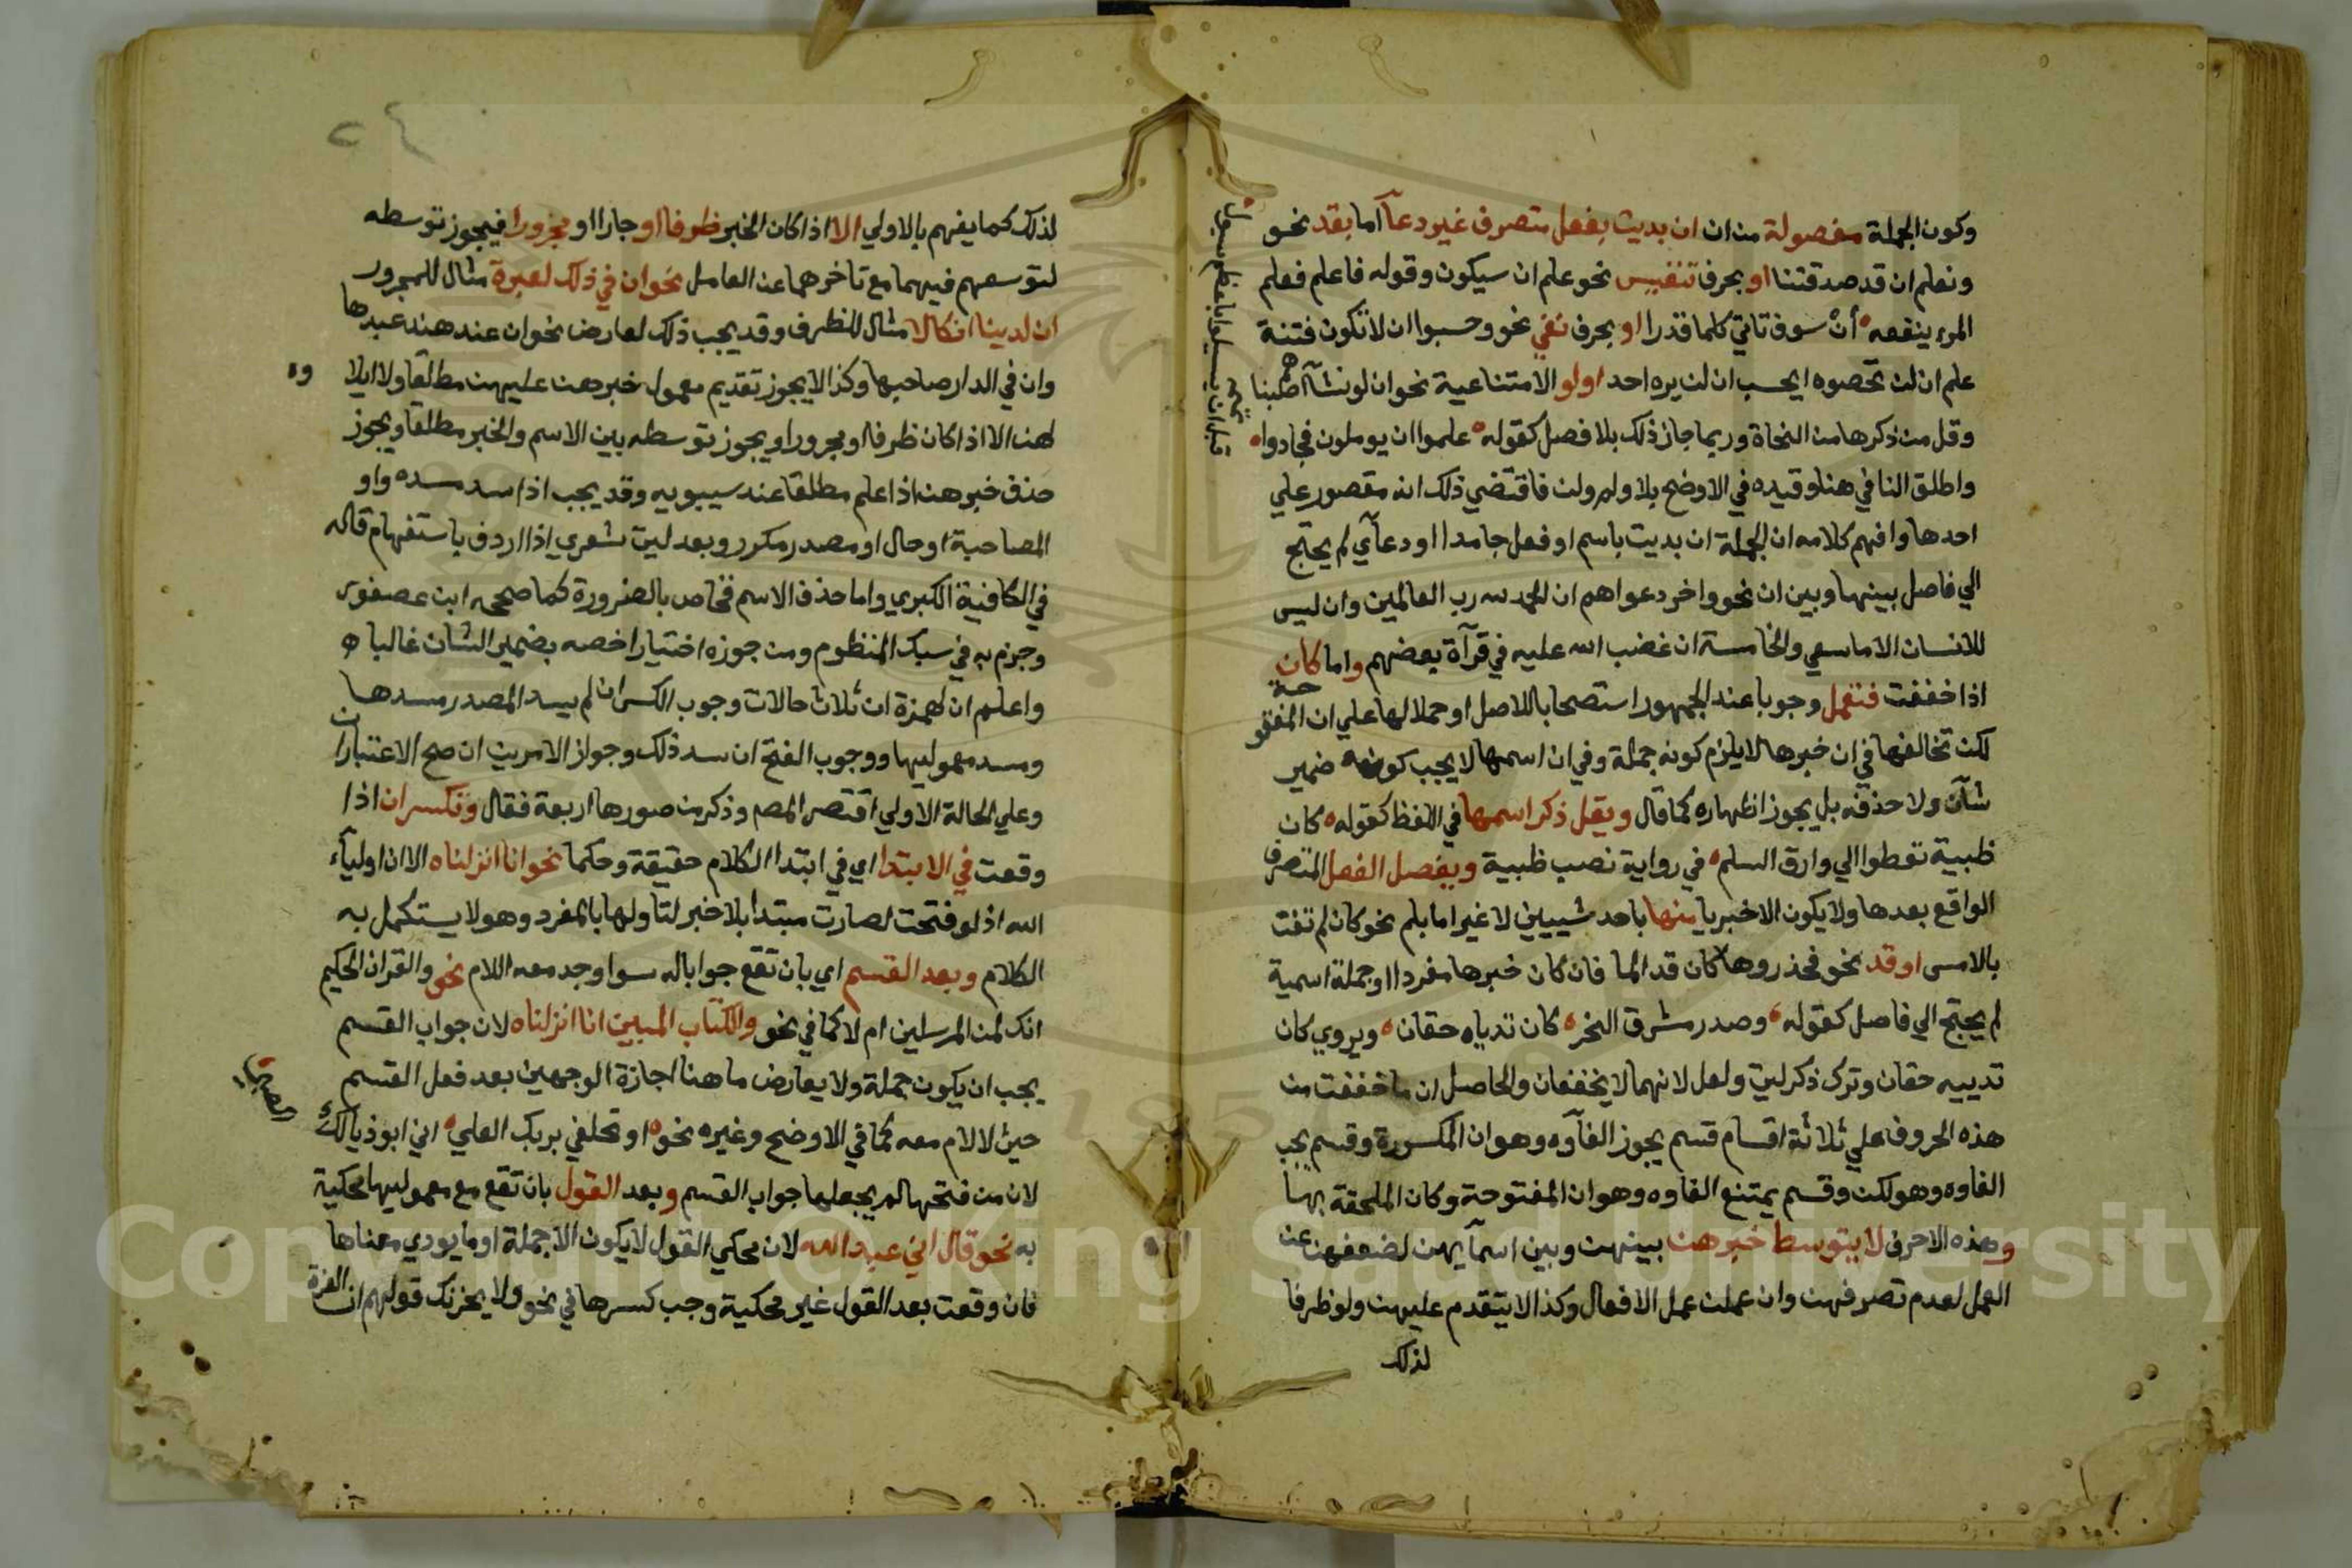 وكون الجملة مفصولة من ان ان بديت بفعل متصرف غير دعآ اما بقد نحو
ونعلم ان قد صدقتنا او بحرف تنفيس نحو علم ان سيكون وقوله فاعلم فعلم
المرء ينفعه أن سوف تاتي كلما قدرا او بحرف نفي نحو وحسبوا ان لا تكون فتنة
علم ان لن تحصوه ايحسب ان لن يره احد او لو الامتناعية نحو ان لو نشآ اصبنا هم
وقل من ذكرها من النحاة وربما جاز ذلك بلا فصل كقوله علموا ان يوملون فجادوا
قبل ان يسيلوا باعظم سول
واطلق النافي هنا وقيده في الاوضح بلا ولم ولن فاقتضي ذلك انه مقصور علي
احدها وافهم كلامه ان الجملة ان بديت باسم او فعل جامد او دعآي لم يحتج
الي فاصل بينها وبين ان نحو واخر دعواهم ان الحمد لله رب العالمين وان ليس
للانسان الا ما سعي والخامسة ان غضب الله عليه في قرآة بعضهم واما كان
اذا خففت فتعمل وجوبا عند الجمهور استصحابا للاصل او حملا لها علي ان المفتوحة
لكن تخالفها في ان خبرها لا يلزم كونه جملة وفي ان اسمها لا يجب كونه ضمير
شآن ولا حذفه بل يجوز اظهاره كما قال ويقل ذكر اسمها في اللفظ كقوله كان
ظبية تعطوا الي وارق السلم في رواية نصب ظبية ويفصل الفعل المتصرف
الواقع بعدها ولا يكون الا خبريا منها باحد شييين لا غير اما بلم نحو كان لم تغن
بالامس او قد نحو فحذروها كان قد الما فان كان خبرها مفردا او جملة اسمية
لم يحتج الي فاصل كقوله وصدر مشرق النحر كان ثدياه حقان ويروي كان
ثدييه حقان وترك ذكر ليت ولعل لانهما لا يخففان والحاصل ان ما خففت من
هذه الحروف علي ثلاثة اقسام قسم يجوز الغآوه وهو ان المكسورة وقسم يجب
الغاوه وهو لكن وقسم يمتنع الغاوه وهو ان المفتوحة وكان الملحقة بها
وهذه الاحرف لا يتوسط خبرهن بينهن وبين اسمآيهن لضعفهن عن
العمل لعدم تصرفهن وان عملن عمل الافعال وكذا لا يتقدم عليهن ولو ظرفا
لذلك
لذلك كما يفهم بالاولي الا اذا كان الخبر ظرفا او جارا او مجرورا فيجوز توسطه
لتوسعهم فيهما مع تاخرهما عن العامل نحو ان في ذلك لعبرة مثال للمجرور
ان لدينا انكالا مثال للظرف وقد يجب ذلك لعارض نحو ان عند هند عبدها
وان في الدار صاحبها وكذا لا يجوز تقديم معمول خبرهن عليهن مطلقا ولا ايلاوه
لهن الا اذا كان ظرفا او مجرورا ويجوز توسطه بين الاسم والخبر مطلقا ويجوز
حذف خبرهن اذا علم مطلقا عند سيبويه وقد يجب اذا سد مسده واو
المصاحبة او حال او مصدر مكرر وبعد ليت شعري اذا اردف باستفهام قاله
في الكافية الكبري واما حذف الاسم فخاص بالضرورة كما صححه ابن عصفور
وجزم به في سبك المنظوم ومن جوزه اختيارا خصه بضمير الشان غالبا
واعلم ان لهمزة ان ثلاث حالات وجوب الكسر ان لم يسد المصدر مسدها
ومسد معموليها ووجوب الفتح ان سد ذلك وجواز الامرين ان صح الاعتباران
وعلي الحالة الاولي اقتصر المص وذكر من صورها اربعة فقال وتكسر ان اذا
وقعت في الابتدا اي في ابتدا الكلام حقيقة وحكما نحو انا انزلناه الا ان اوليآء
الله اذ لو فتحت لصارت مبتدا بلا خبر لتاولها بالمفرد وهو لا يستكمل به
الكلام وبعد القسم اي بان تقع جوابا له سوا وجد معه اللام نحو والقران الحكيم
انك لمن المرسلين ام لا كما في نحو والكتاب المبين انا انزلناه لان جواب القسم
يجب ان يكون جملة ولا يعارض ما هنا اجازة الوجهين بعد فعل القسم
حيث لا لام معه كما في الاوضح وغيره نحو او تحلفي بربك العلي اني ابو ذيالك الصبي
لان من فتحها لم يجعلها جواب القسم وبعد القول بان تقع مع معموليها محكية
به نحو قال اني عبد الله لان محكي القول لا يكون الا جملة او ما يودي معناها
فان وقعت بعد القول غير محكية وجب كسرها في نحو ولا يحزنك قولهم ان العزة
Copyright © King Saud University